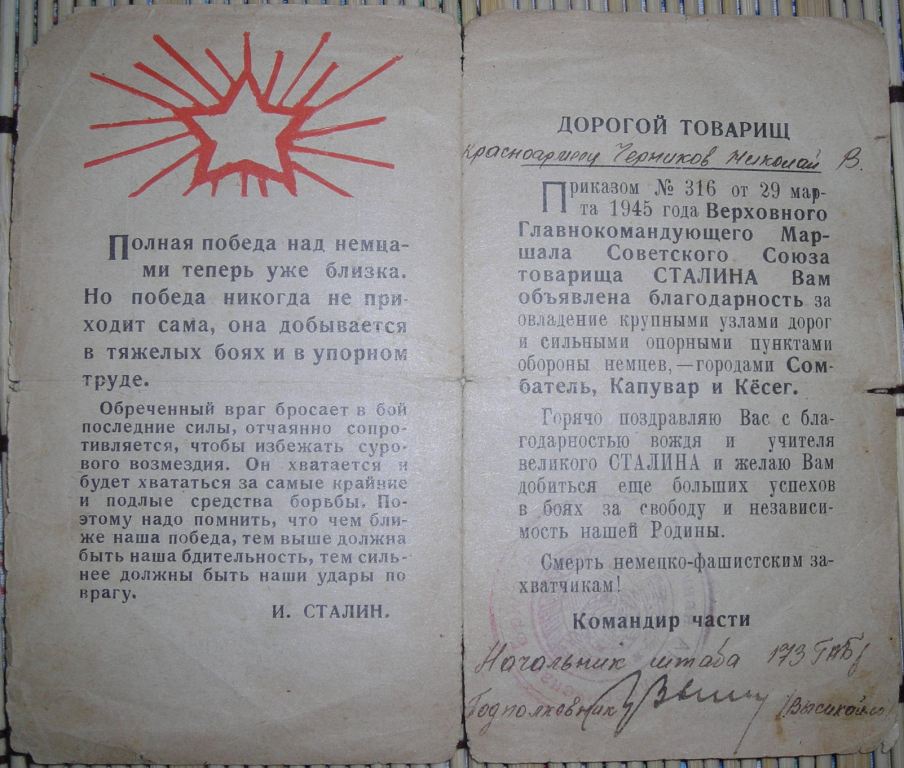 Полная победа над немца-
ми теперь уже близка.
Но победа никогда не при-
ходит сама, она добывается
в тяжелых боях и в упорном
труде.
Обреченный враг бросает в бой
последние силы, отчаянно сопро-
тивляется, чтобы избежать суро-
вого возмездия. Он хватается и
будет хвататься за самые крайние
и подлые средства борьбы. По-
этому надо помнить, что чем бли-
же наша победа, тем выше должна
быть наша бдительность, тем силь-
нее должны быть наши удары по
врагу.
И. СТАЛИН.
ДОРОГОЙ ТОВАРИЩ
красноармеец Черников Николай В.
Приказом № 316 от 29 мар-
та 1945 года Верховного
Главнокомандующего Мар-
шала Советского Союза
товарища СТАЛИНА Вам
объявлена благодарность за
овладение крупными узлами дорог
и сильными опорными пунктами
обороны немцев,—городами Сом-
батель, Капувар и Кёсег.
Горячо поздравляю Вас с бла-
годарностью вождя и учителя
великого СТАЛИНА и желаю Вам
добиться еще больших успехов
в боях за свободу и независи-
мость нашей Родины.
Смерть немецко-фашистским за-
хватчикам!
Командир части
Начальник штаба 173
Подполковник